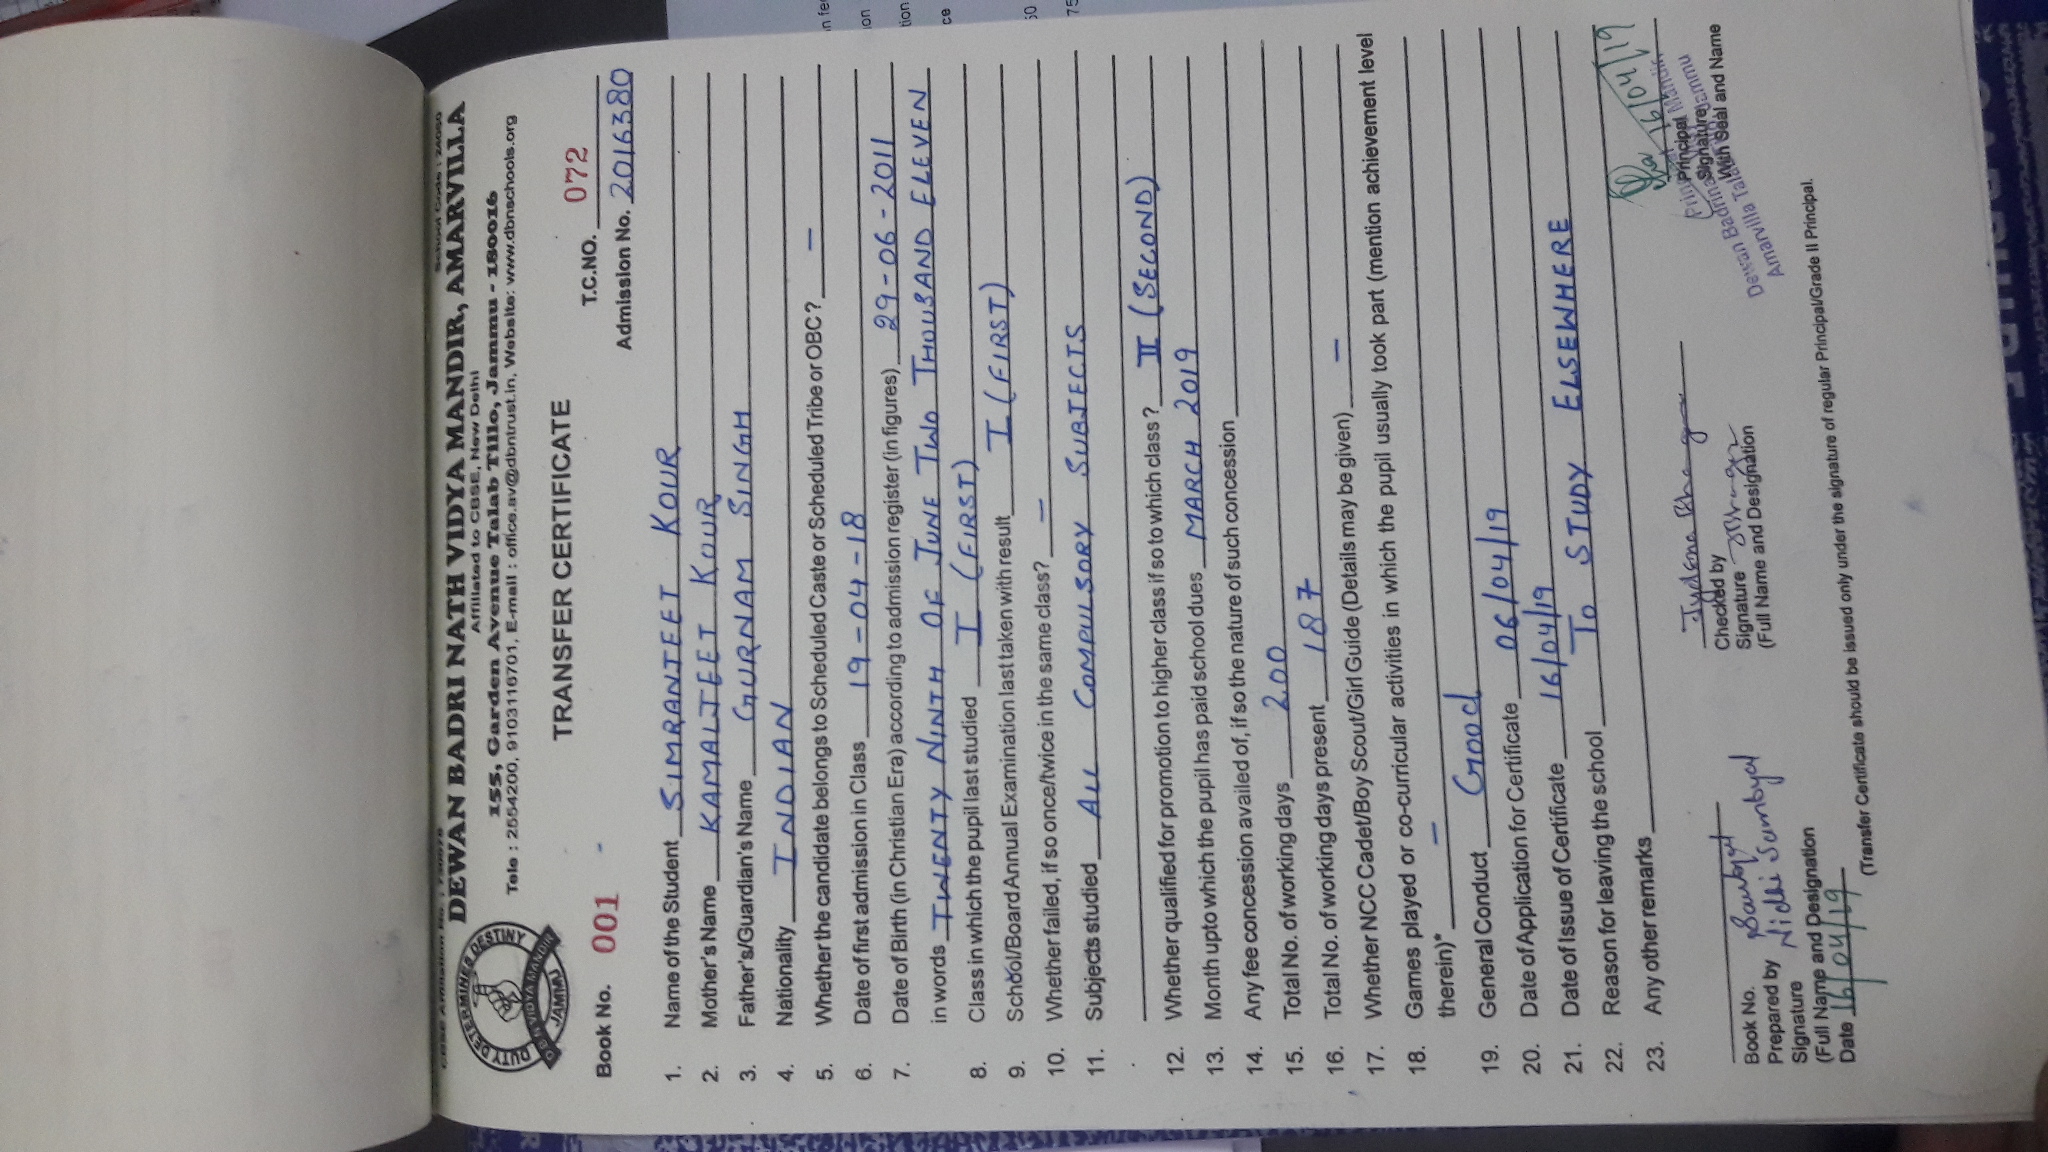 School Code : 24060
DEWAN BADRI NATH VIDYA MANDIR, AMARVILLA
Affiliated to CBSE, New Delhi
155, Garden Avenue Talab Tillo, Jammu - 180016
Tele : 2554200, 9103116701, E-mail : office.av@dbntrust.in, Website: www.dbnschools.org
DUTY DETERMINES DESTINY
D B N VIDYA MANDIR
JAMMU
TRANSFER CERTIFICATE
Book No. 001
T.C.NO. 072
Admission No. 2016380
1. Name of the Student SIMRANJEET KOUR
2. Mother's Name KAMALJEET KOUR
3. Father's/Guardian's Name GURNAM SINGH
4. Nationality INDIAN
5. Whether the candidate belongs to Scheduled Caste or Scheduled Tribe or OBC? —
6. Date of first admission in Class 19-04-18
7. Date of Birth (in Christian Era) according to admission register (in figures) 29-06-2011
in words TWENTY NINTH OF JUNE TWO THOUSAND ELEVEN
8. Class in which the pupil last studied I (FIRST)
9. School/Board Annual Examination last taken with result I (FIRST)
10. Whether failed, if so once/twice in the same class? —
11. Subjects studied ALL COMPULSORY SUBJECTS
12. Whether qualified for promotion to higher class if so to which class? II (SECOND)
13. Month upto which the pupil has paid school dues MARCH 2019
14. Any fee concession availed of, if so the nature of such concession
15. Total No. of working days 200
16. Total No. of working days present 187
17. Whether NCC Cadet/Boy Scout/Girl Guide (Details may be given) —
18. Games played or co-curricular activities in which the pupil usually took part (mention achievement level
therein)* —
19. General Conduct Good
20. Date of Application for Certificate 06/04/19
21. Date of Issue of Certificate 16/04/19
22. Reason for leaving the school To STUDY ELSEWHERE
23. Any other remarks
16/04/19
Book No.
Prepared by
Signature Nidhi Sambyal
(Full Name and Designation
Date 16/04/19
Checked by
Signature
(Full Name and Designation
Principal
Signature
With Seal and Name
Principal
Dewan Badrinath Vidya Mandir
Amarvilla Talab Tillo Jammu
(Transfer Certificate should be issued only under the signature of regular Principal/Grade II Principal.